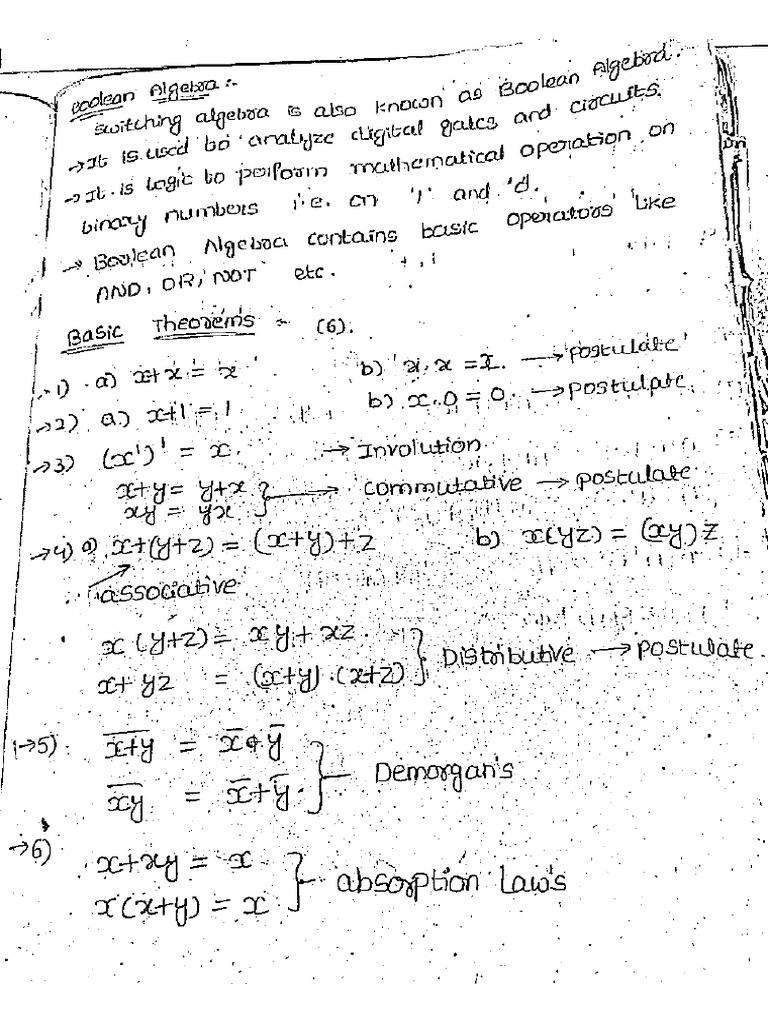 Boolean Algebra :-
switching algebra is also known as Boolean Algebra.
→ It is used to analyze digital gates and circuits.
→ It is logic to perform mathematical operation on
binary numbers i.e. on '1' and '0'.
→ Boolean Algebra contains basic operators like
AND, OR, NOT etc.
Basic Theorems - (6).
→ 1) a) x+x = x b) x.x = x. → postulate
→ 2) a) x+1 = 1 b) x.0 = 0. → postulate
→ 3) (x')' = x. → Involution
x+y = y+x } → commutative → postulate
xy = yx
→ 4) a) x+(y+z) = (x+y)+z b) x(yz) = (xy)z
associative
x(y+z) = xy+xz. } Distributive → postulate.
x+yz = (x+y).(x+z)
→ 5) x̅+̅y̅ = x̅ . y̅ } Demorgan's
x̅y̅ = x̅+y̅.
→ 6) x+xy = x } absorption Law's
x(x+y) = x